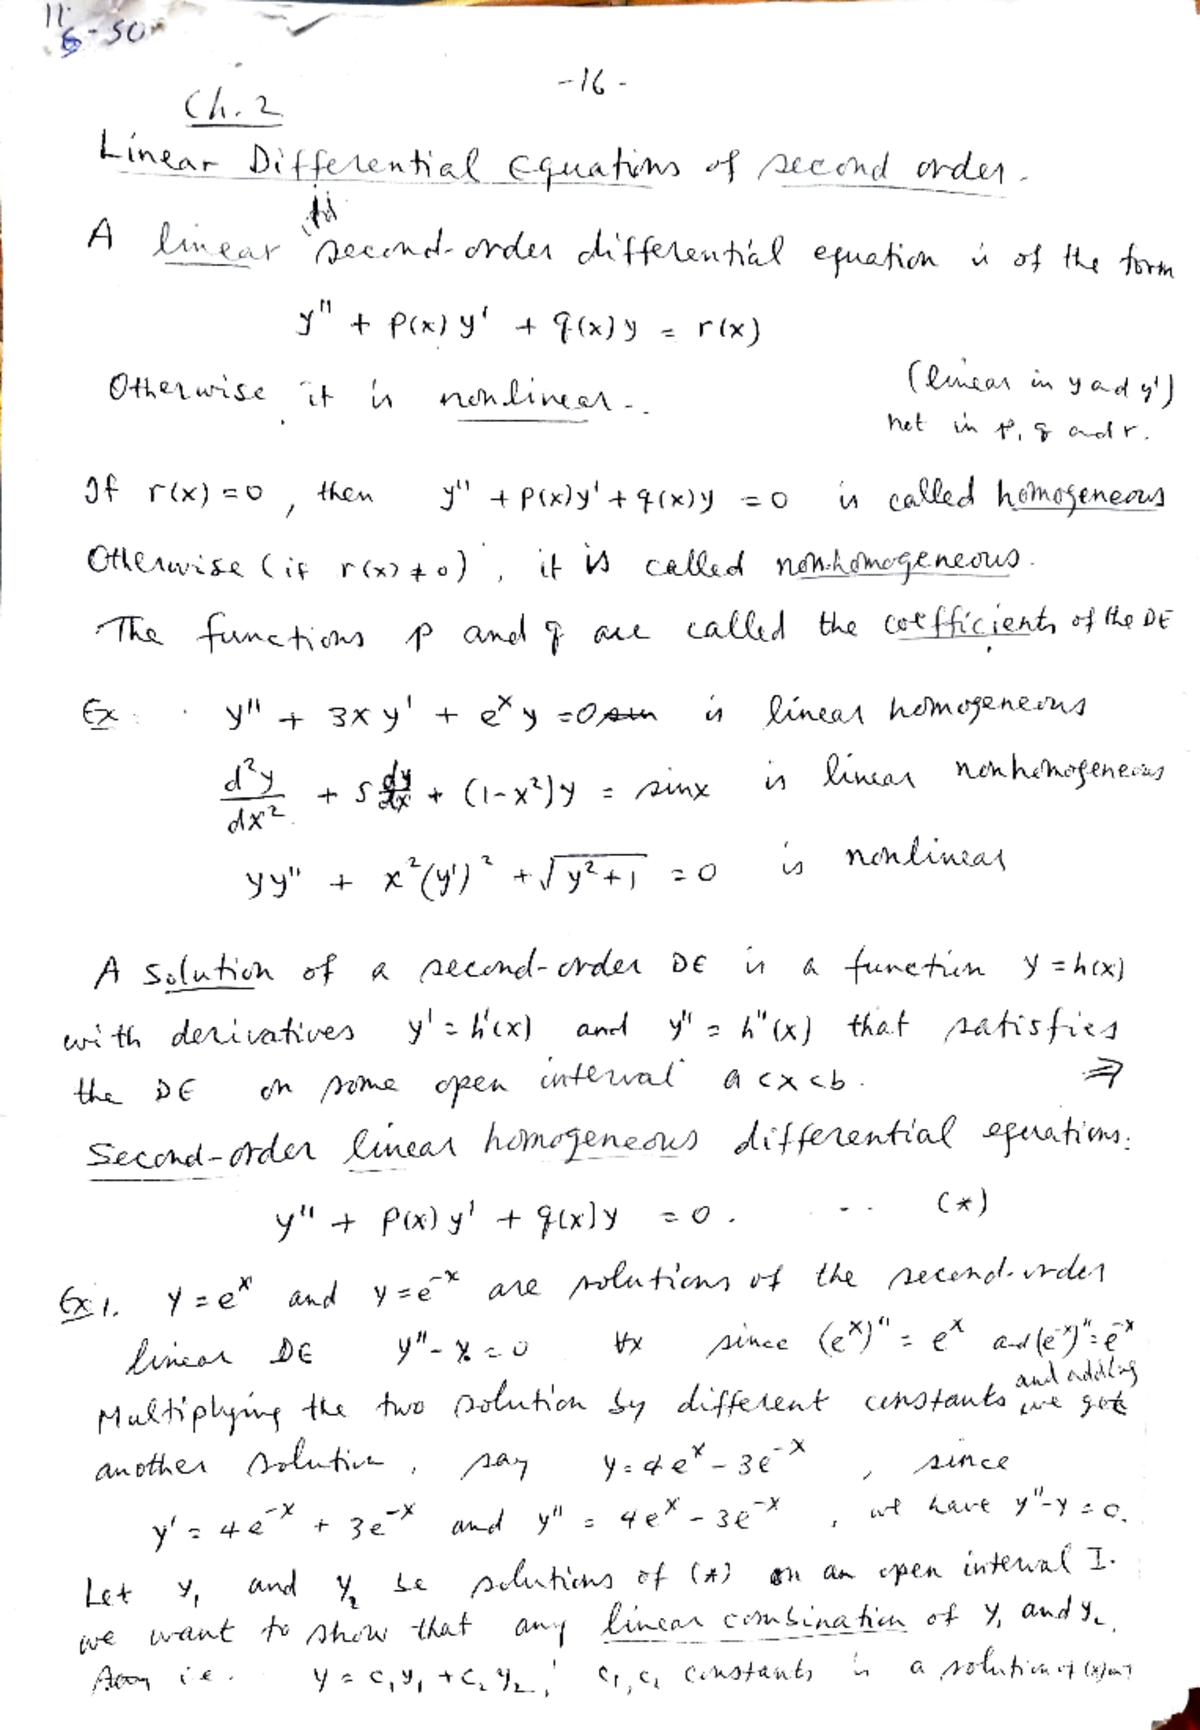 11
6-50
-16-
Ch. 2
Linear Differential Equations of second order.
A linear second-order differential equation is of the form
y'' + p(x) y' + q(x) y = r(x)
Otherwise it is nonlinear..
(linear in y and y')
not in p, q and r.
If r(x) = 0, then y'' + p(x)y' + q(x)y = 0 is called homogeneous
Otherwise (if r(x) ≠ 0), it is called nonhomogeneous.
The functions p and q are called the coefficients of the DE
Ex: y'' + 3x y' + e^x y = 0 sin is linear homogeneous
d²y/dx² + 5 dy/dx + (1-x²)y = sinx is linear nonhomogeneous
yy'' + x²(y')² + √(y²+1) = 0 is nonlinear
A solution of a second-order DE is a function y = h(x)
with derivatives y' = h'(x) and y'' = h''(x) that satisfies
the DE on some open interval a<x<b. ⇒
Second-order linear homogeneous differential equations:
y'' + p(x) y' + q(x)y = 0. .. (*)
Ex 1. y = e^x and y = e^-x are solutions of the second-order
linear DE y'' - y = 0 ∀x since (e^x)'' = e^x and (e^-x)'' = e^-x
Multiplying the two solution by different constants and adding we get
another solution, say y = 4e^x - 3e^-x, since
y' = 4e^-x + 3e^-x and y'' = 4e^x - 3e^-x, we have y''-y = 0.
Let y₁ and y₂ be solutions of (*) on an open interval I.
we want to show that any linear combination of y₁ and y₂,
i.e. y = c₁y₁ + c₂y₂; c₁, c₂ constants is a solution of (*) on I